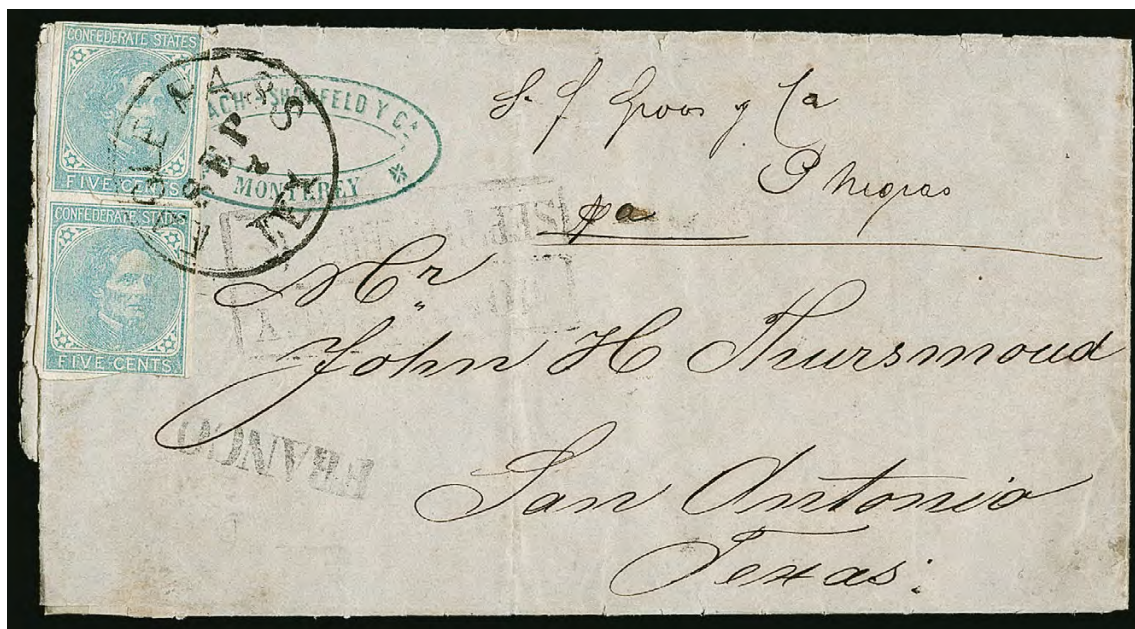 CONFEDERATE STATES
FIVE CENTS
CONFEDERATE STATES
FIVE CENTS
EAGLE PASS
SEP
2
TEX
FELD Y Ca
MONTEREY *
y Ca
P Negras
pa
Mr
John H Thursmond
San Antonio
Texas:
FRANCO